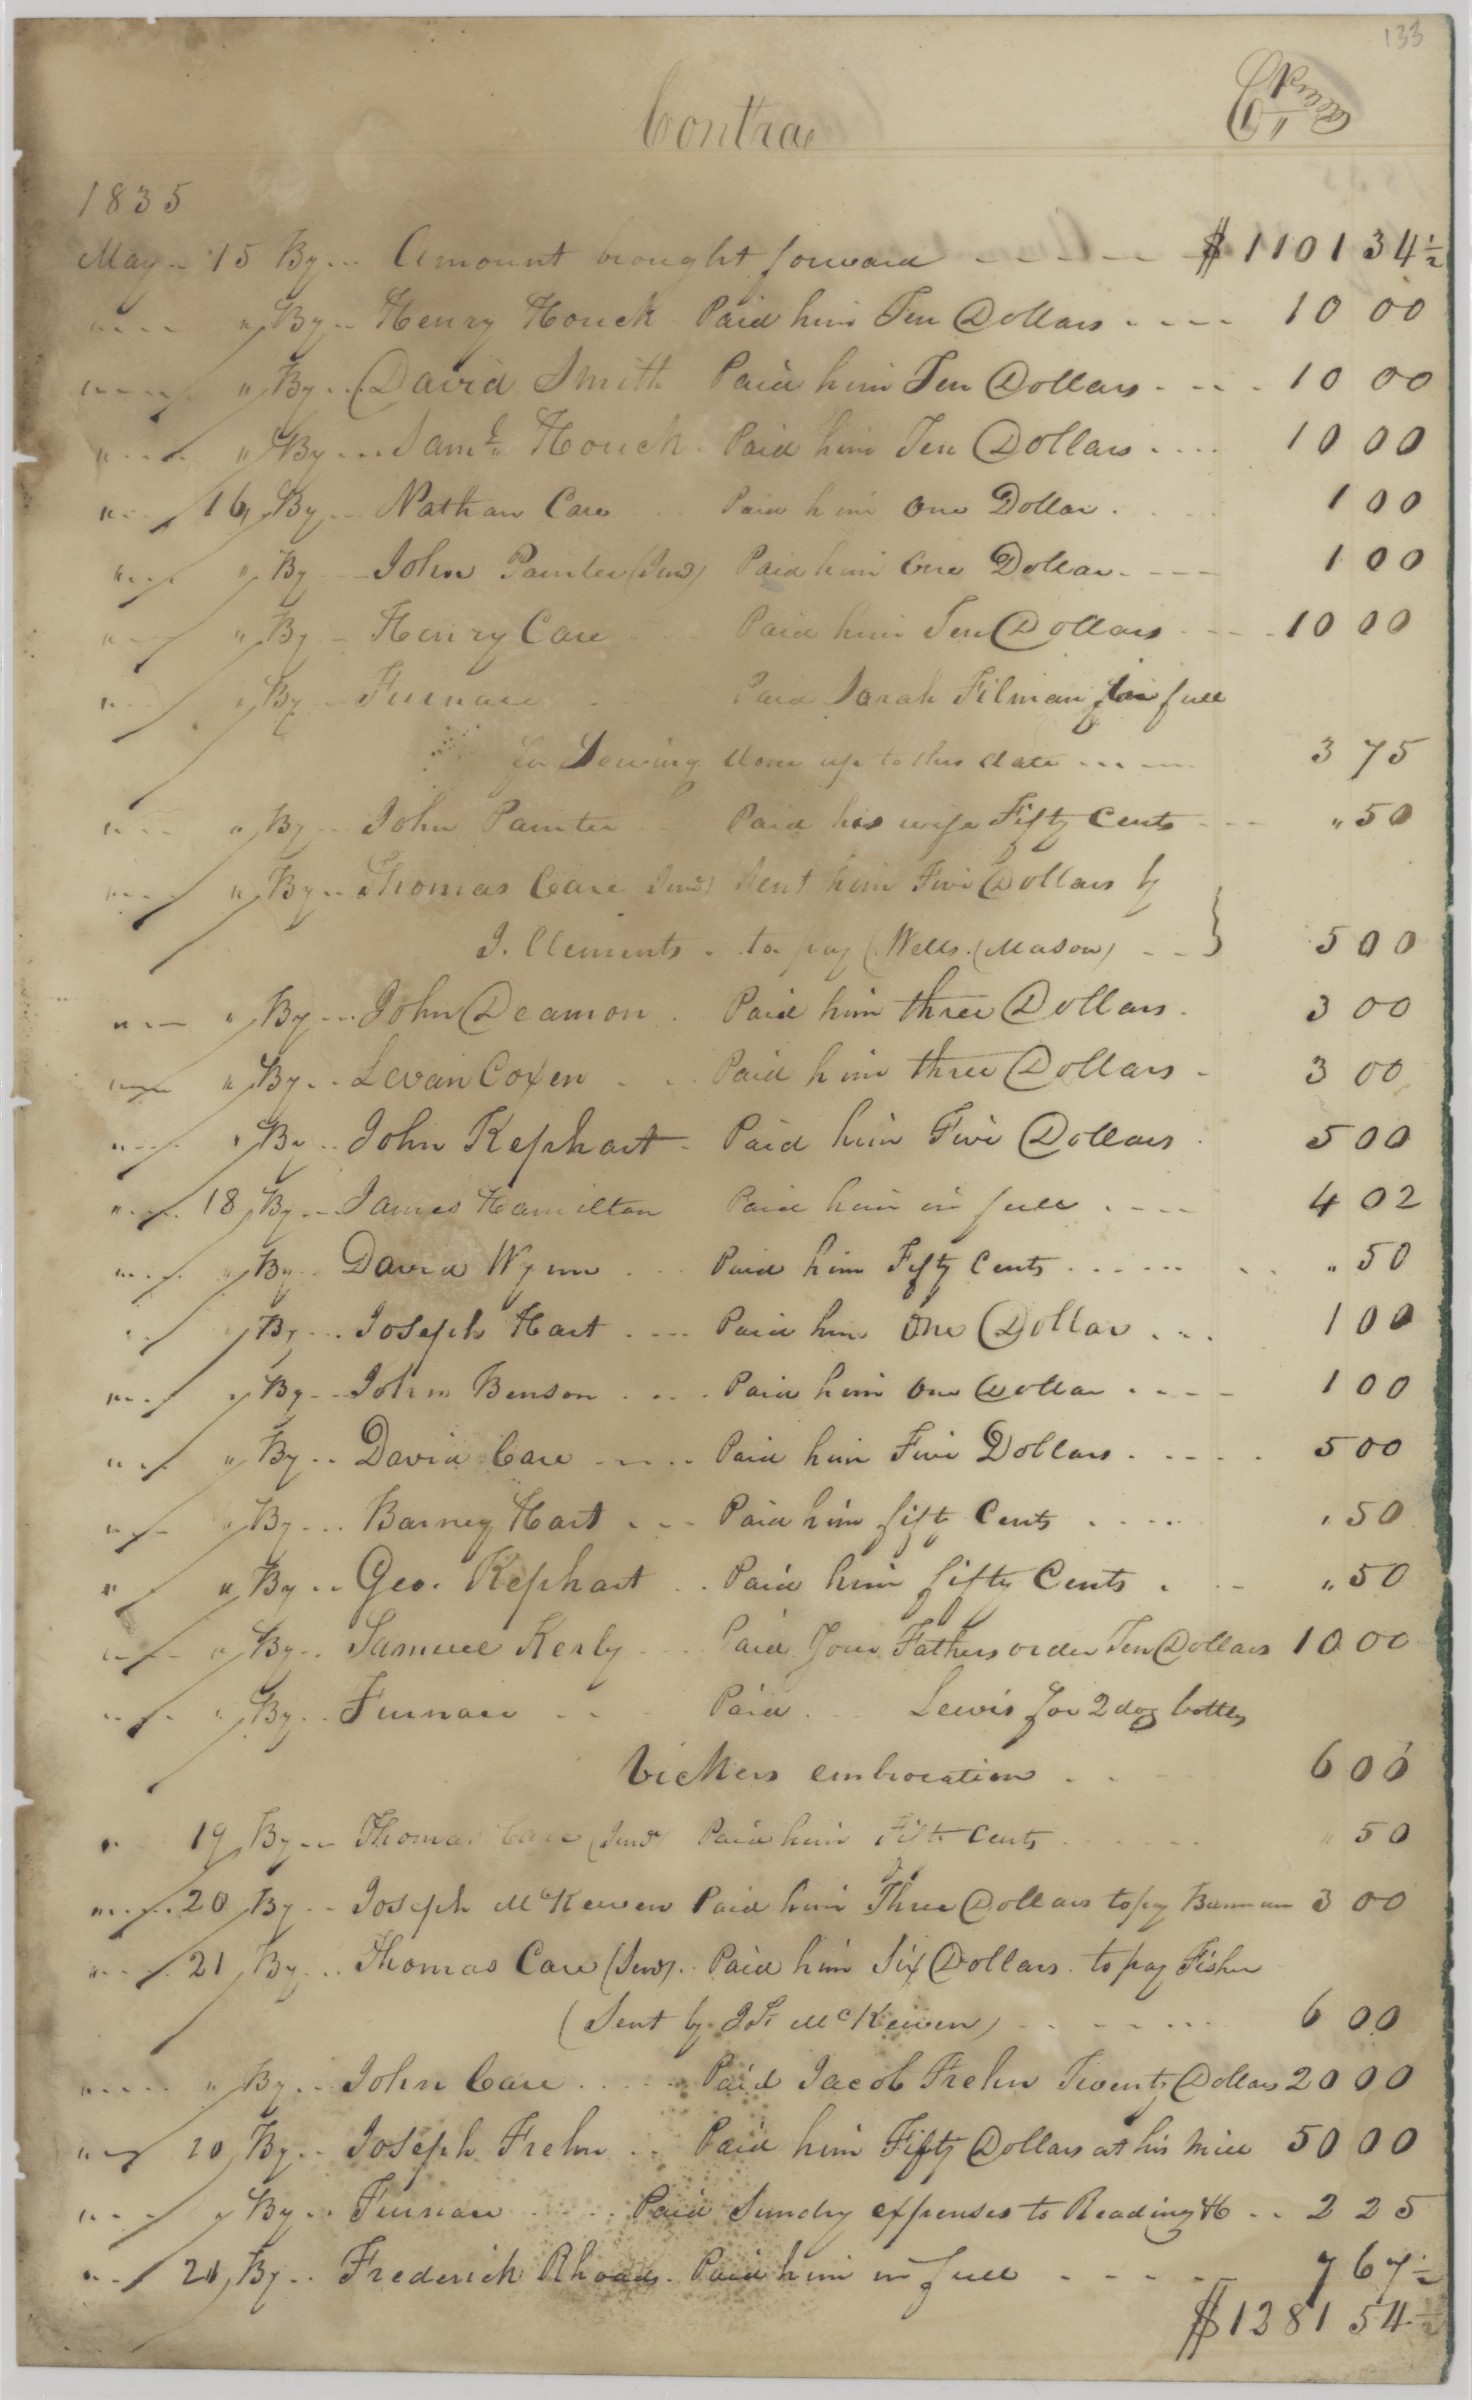 133
Contra Cr
1835
May 15 By Amount brought forward $ 11013 34½
" " By Henry Houck Paid him Ten Dollars 10 00
" " By David Smith Paid him Ten Dollars 10 00
" " By Saml. Houck Paid him Ten Dollars 10 00
" 16 By Nathan Care Paid him One Dollar 1 00
" " By John Painter (Junr) Paid him One Dollar 1 00
" " By Henry Care Paid him Ten Dollars 10 00
" " By Furnace Paid Sarah Filman in full
for Sewing done up to this date 3 75
" " By John Painter Paid his wife Fifty Cents " 50
" " By Thomas Care Junr) Sent him Five Dollars by
J. Clements to pay (Wells. (Mason) } 5 00
" " By John Deamon Paid him three Dollars 3 00
" " By Levan Coxen Paid him three Dollars 3 00
" " By John Kephart Paid him Five Dollars 5 00
" 18 By James Hamilton Paid him in full 4 02
" " By David Wynn Paid him Fifty Cents " 50
" " By Joseph Hart Paid him One Dollar 1 00
" " By John Benson Paid him One Dollar 1 00
" " By David Care Paid him Five Dollars 5 00
" " By Barney Hart Paid him fifty Cents " 50
" " By Geo. Kephart Paid him fifty Cents " 50
" " By Samuel Kerby Paid Your Fathers order Ten Dollars 10 00
" " By Furnace Paid Lewis for 2 doz bottles
Vickers embrocation 6 00
" 19 By Thomas Care (Junr) Paid him Fifty Cents " 50
" 20 By Joseph McKewen Paid him Three Dollars to pay Bannan 3 00
" 21 By Thomas Care (Junr). Paid him Six Dollars to pay Fisher
(Sent by Js. McKewen) 6 00
" " By John Care Paid Jacob Frehn Twenty Dollars 20 00
" 20 By Joseph Frehn Paid him Fifty Dollars at his Mill 50 00
" " By Furnace Paid Sundry expenses to Reading &c 2 25
" 21 By Frederick Rhoads Paid him in full 7 67½
$ 1281 54½